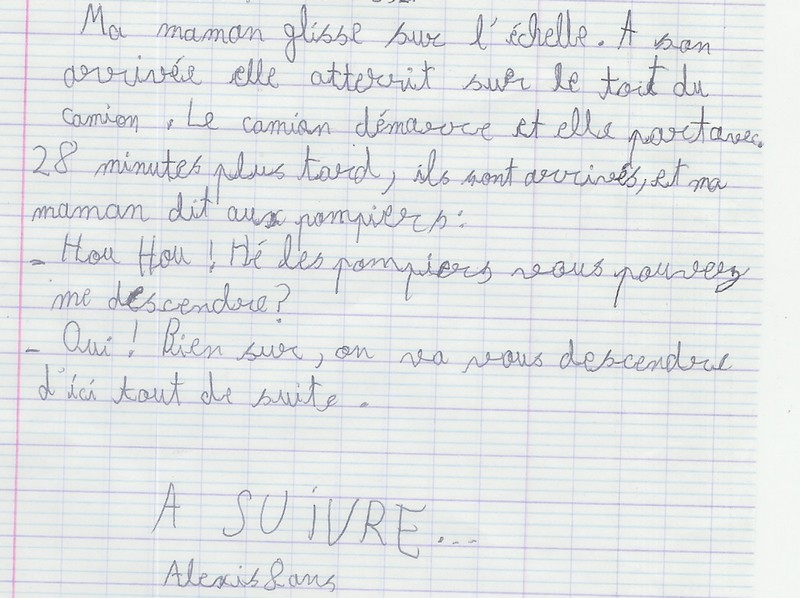 Ma maman glisse sur l'échelle. A son
arrivée elle atterrit sur le toit du
camion. Le camion démarre et elle part avec.
28 minutes plus tard, ils sont arrivés, et ma
maman dit aux pompiers :
- Hou Hou ! Hé les pompiers vous pouvez
me descendre ?
- Oui ! Bien sur, on va vous descendre
d'ici tout de suite.
A SUIVRE...
Alexis 8 ans